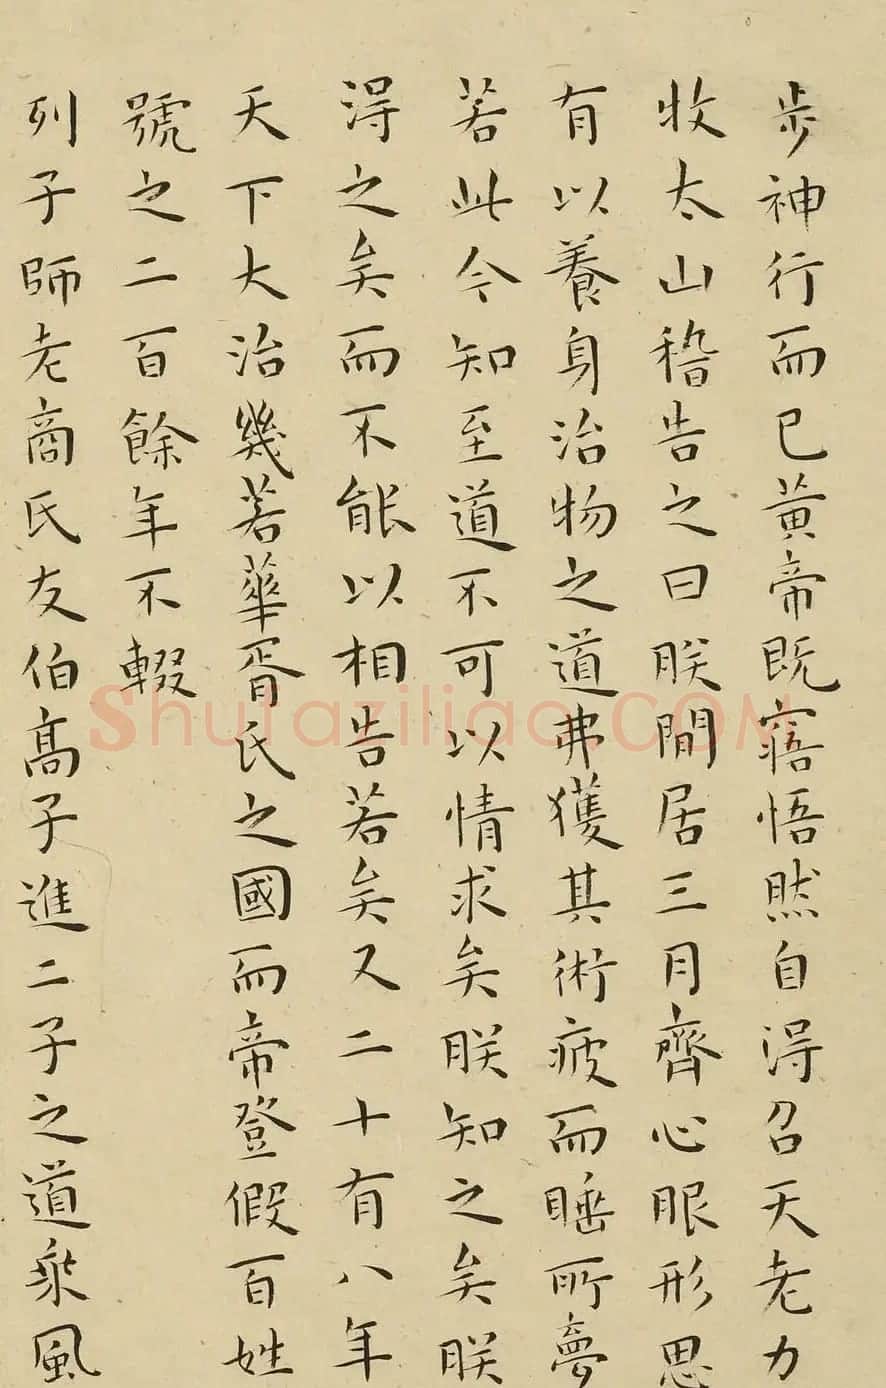 步神行而已黃帝既寤悟然自得召天老力
牧太山稽告之曰朕閒居三月齊心服形思
有以養身治物之道弗獲其術疲而睡所夢
若此今知至道不可以情求矣朕知之矣朕
得之矣而不能以相告若矣又二十有八年
天下大治幾若華胥氏之國而帝登假百姓
號之二百餘年不輟
列子師老商氏友伯高子進二子之道乘風
Shufaziliao.COM